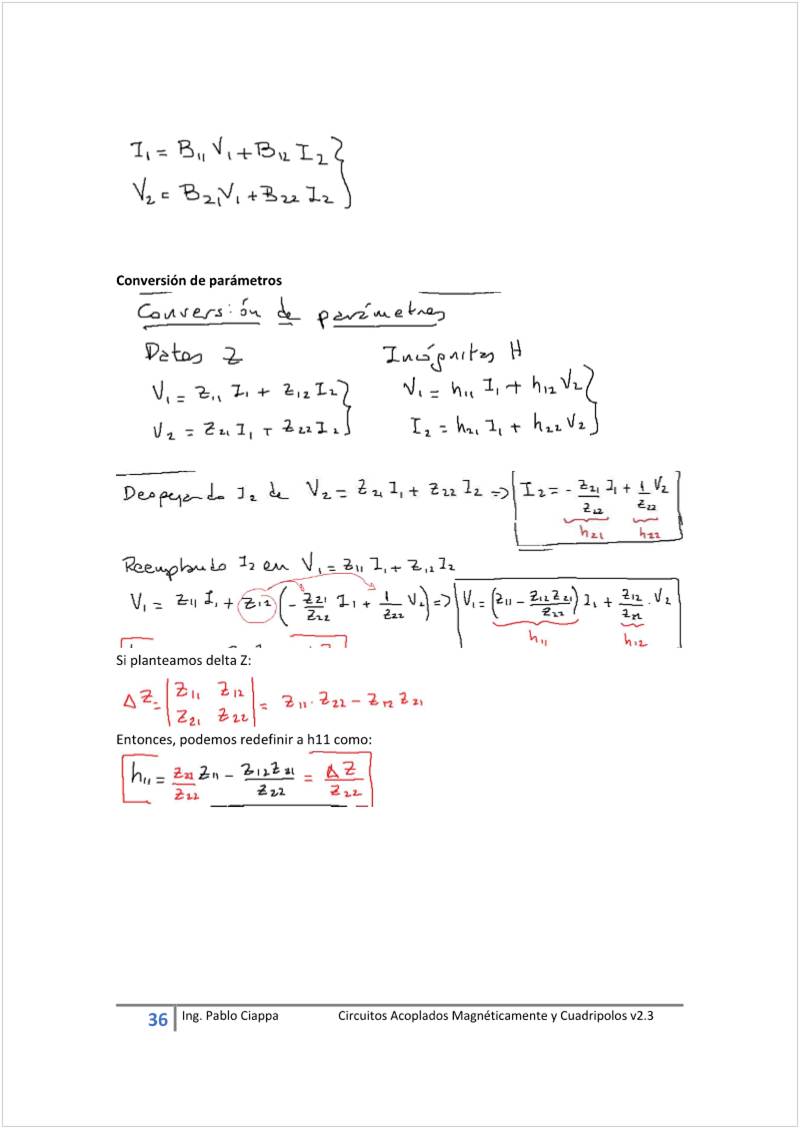 I₁ = B₁₁ V₁ + B₁₂ I₂ }
V₂ = B₂₁ V₁ + B₂₂ I₂ }
Conversión de parámetros
Conversión de parámetros
Datos Z Incógnitas H
V₁ = Z₁₁ I₁ + Z₁₂ I₂ } V₁ = h₁₁ I₁ + h₁₂ V₂ }
V₂ = Z₂₁ I₁ + Z₂₂ I₂ } I₂ = h₂₁ I₁ + h₂₂ V₂ }
Despejando I₂ de V₂ = Z₂₁ I₁ + Z₂₂ I₂ => I₂ = - Z₂₁/Z₂₂ I₁ + 1/Z₂₂ V₂
h₂₁ h₂₂
Reemplazando I₂ en V₁ = Z₁₁ I₁ + Z₁₂ I₂
V₁ = Z₁₁ I₁ + Z₁₂ (- Z₂₁/Z₂₂ I₁ + 1/Z₂₂ V₂) => V₁ = (Z₁₁ - Z₁₂ Z₂₁/Z₂₂) I₁ + Z₁₂/Z₂₂ . V₂
h₁₁ h₁₂
Si planteamos delta Z:
ΔZ = | Z₁₁ Z₁₂ |
| Z₂₁ Z₂₂ | = Z₁₁ . Z₂₂ - Z₁₂ Z₂₁
Entonces, podemos redefinir a h11 como:
h₁₁ = Z₂₂/Z₂₂ Z₁₁ - Z₁₂ Z₂₁/Z₂₂ = ΔZ/Z₂₂
36 Ing. Pablo Ciappa Circuitos Acoplados Magnéticamente y Cuadripolos v2.3